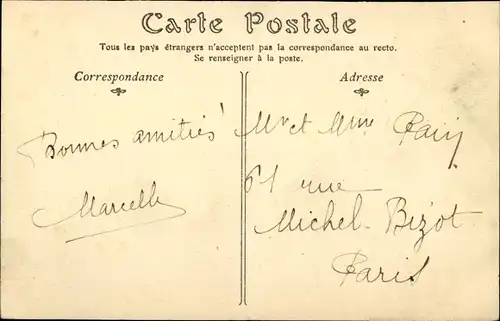 Carte Postale
Tous les pays étrangers n'acceptent pas la correspondance au recto.
Se renseigner à la poste.
Correspondance
Bonnes amitiés
Marcelle
Adresse
Mr et Mme
61 rue
Michel-Bizot
Paris